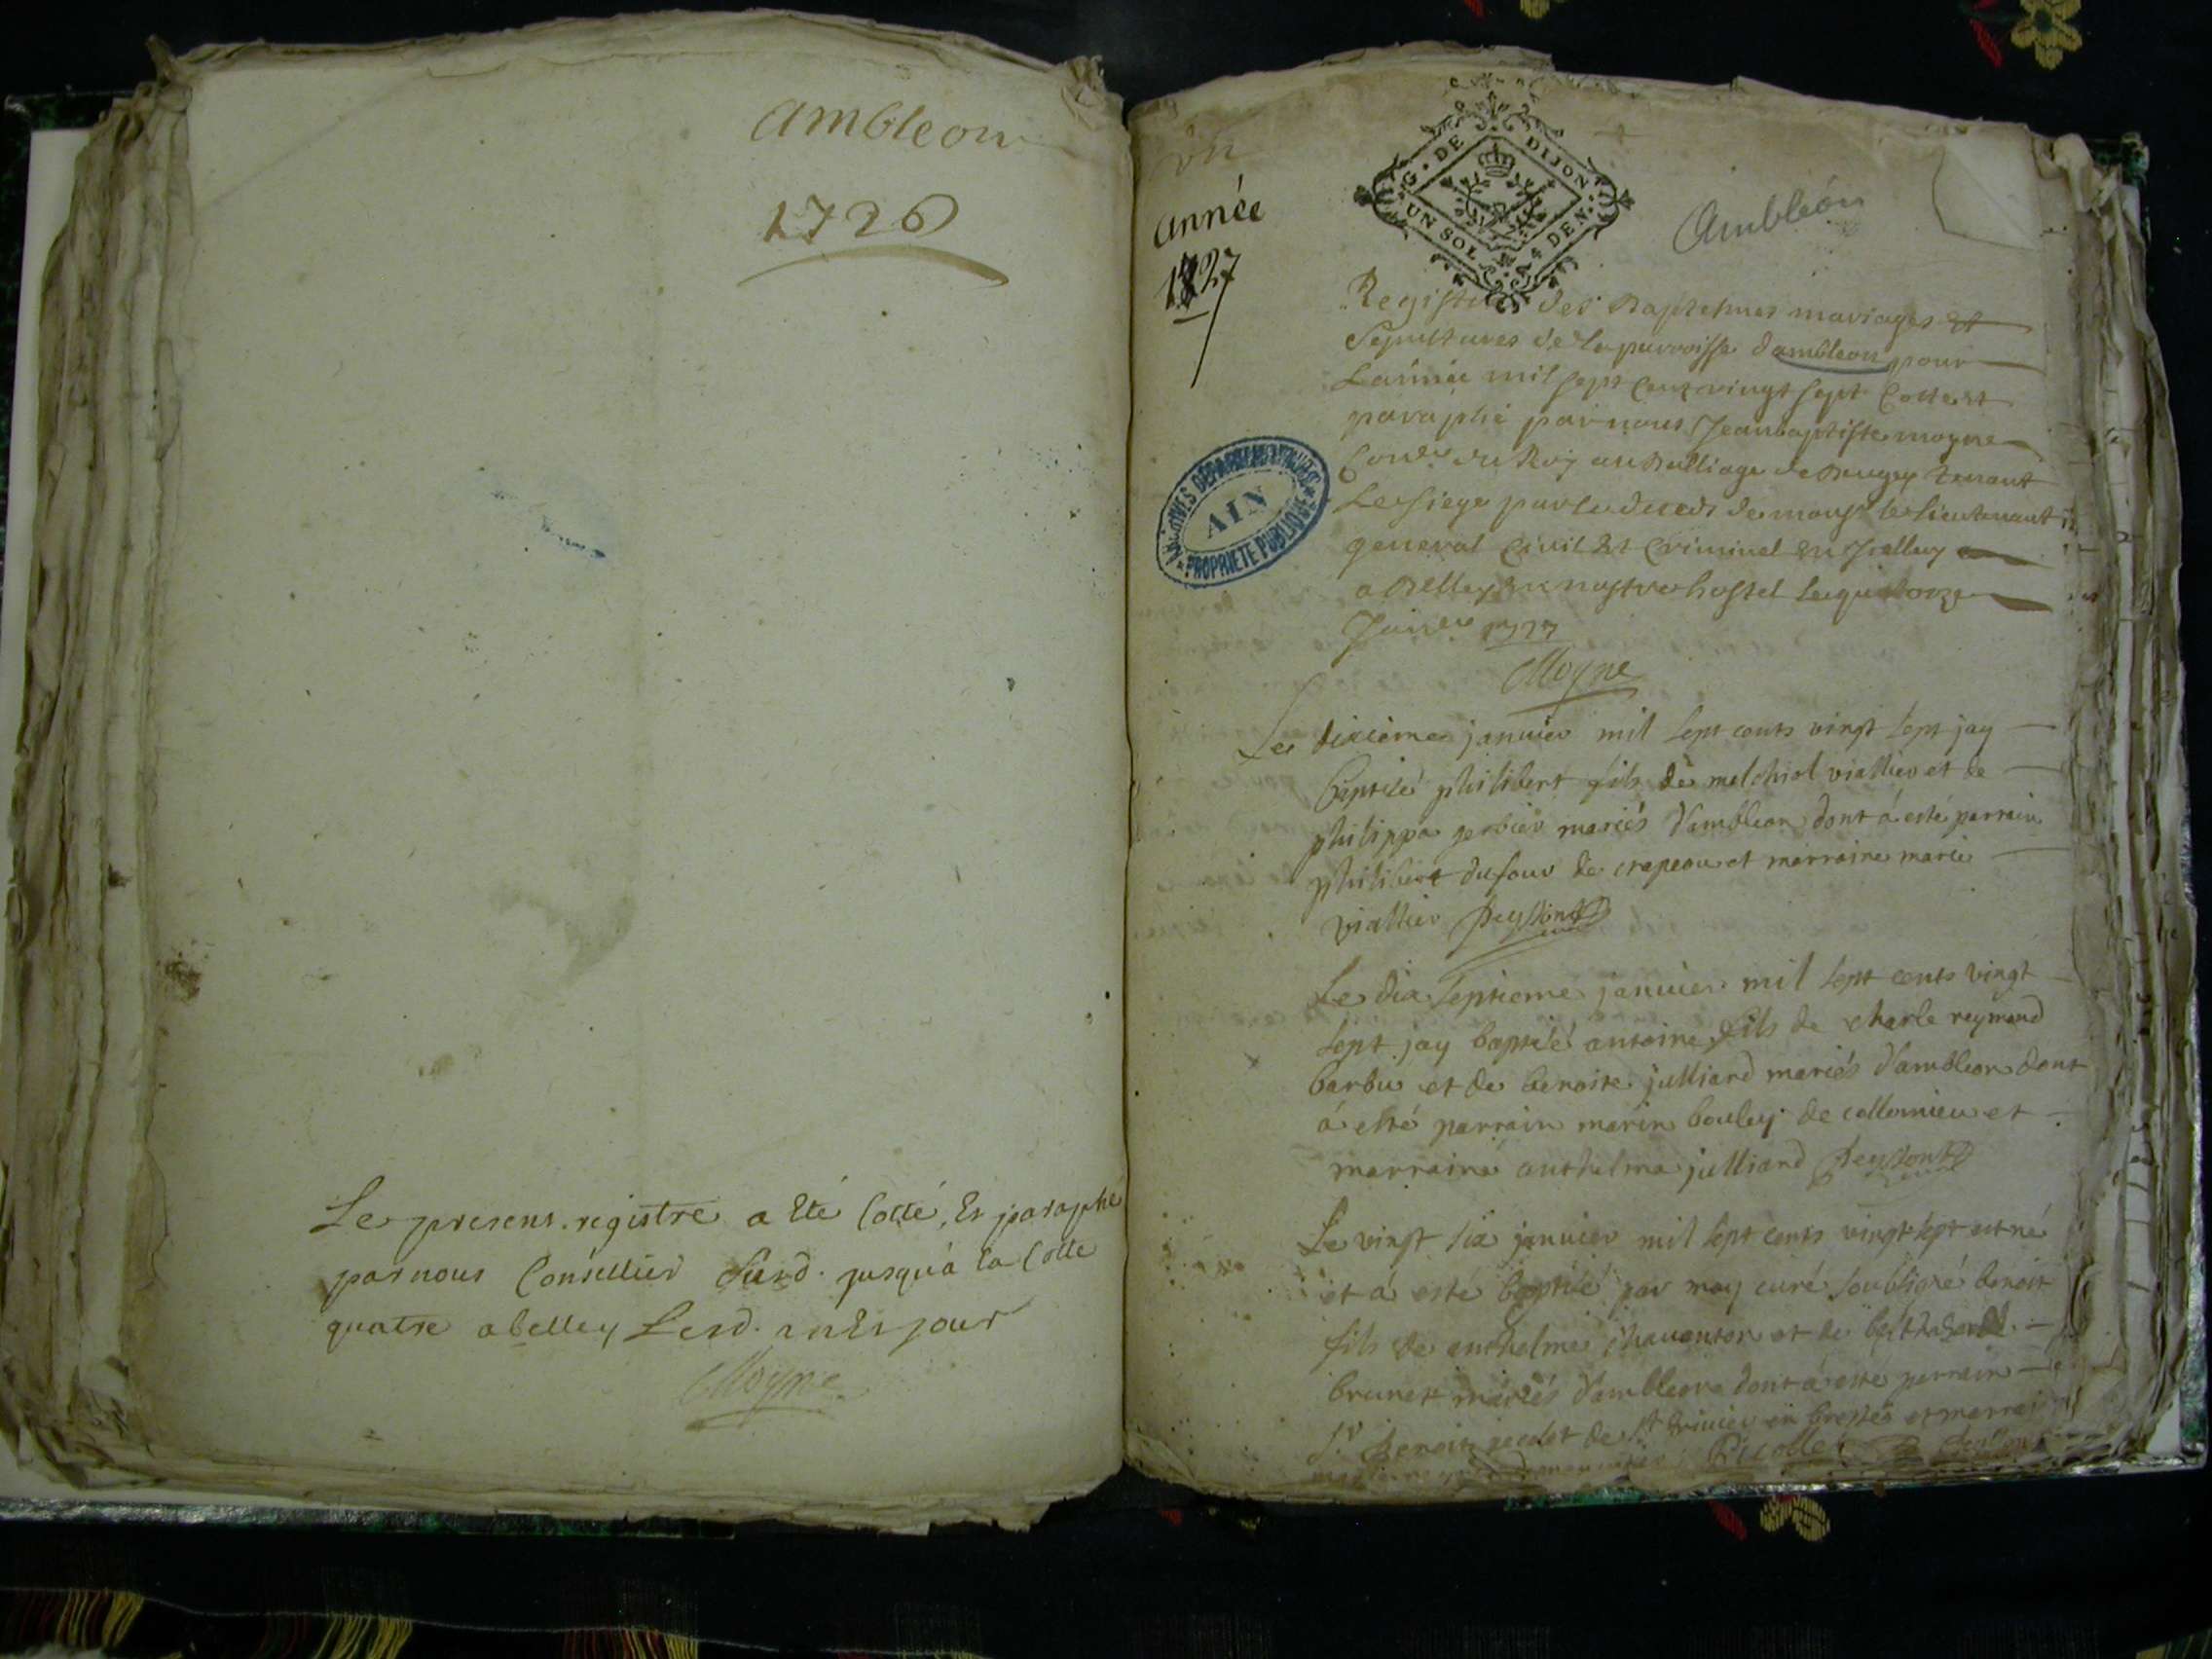 Ambleon
1726
Le present registre a Eté Cotté, Et paraphé
par nous Conseiller Susd. jusqu'a la Cotte
quatre a belley Lesd. an Et jour
Moyne
un
année
1727
G. DE DIJON
UN SOL 4 DEN.
Ambléon
ARCHIVES DÉPARTEMENTALES
AIN
PROPRIETE PUBLIQUE
Registre des Baptesmes mariages Et
Sepultures de la parroisse dambleon pour
Lannée mil sept cent vingt sept Cotté et
paraphé par nous Jean baptiste moyne
Conser du Roy au Balliage de Bugey tenant
Le siege par le deceds de monsr le lieutenant
general Civil Et Criminel
a Belley En nostre hostel le quatorze
Janvier 1727
Moyne
Le dixieme janvier mil sept cents vingt sept jay
baptisé philibert fils de melchiol viallier et de
philippa gerbier mariés d'ambleon dont á esté parrain
philibert dufour de crapeou et marraine marie
viallier Peysson
Le dix septieme janvier mil sept cents vingt
sept jay baptisé antoine fils de charle reymond
barbu et de benoite julliard mariés d'ambleon dont
á esté parrain marin bouley de collomieu et
marraine anthelma julliard Peysson
Le vingt six janvier mil sept cents vingt sept est né
et á esté baptisé par moy curé soubsigné benoit
fils de anthelme chavanton et de
brunet mariés d'ambleon dont á esté parrain
Sr Benoit de St trivier en bresse et marraine